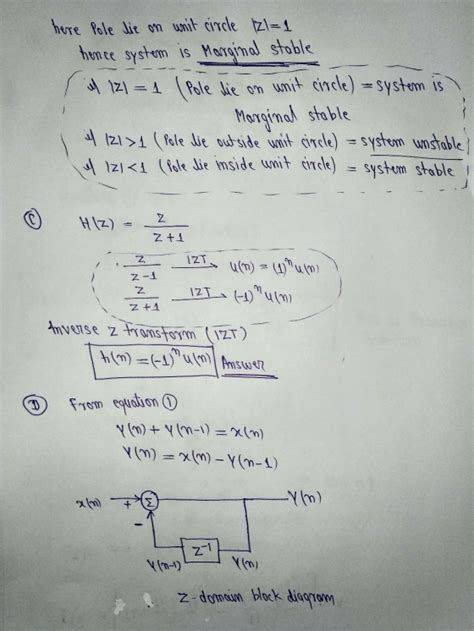 here Pole lie on unit circle |Z|=1
hence system is Marginal stable
if |Z| = 1 (Pole lie on unit circle) = system is
Marginal stable
if |Z|>1 (Pole lie outside unit circle) = system unstable
if |Z|<1 (Pole lie inside unit circle) = system stable
C H(Z) = Z / Z+1
Z / Z-1 IZT → u(n) = (1)^n u(n)
Z / Z+1 IZT → (-1)^n u(n)
Inverse Z transform (IZT)
h(n) = (-1)^n u(n) Answer
D From equation 1
Y(n) + Y(n-1) = x(n)
Y(n) = x(n) - Y(n-1)
x(n) + Σ Y(n)
-
Z^-1
Y(n-1) Y(n)
Z-domain block diagram